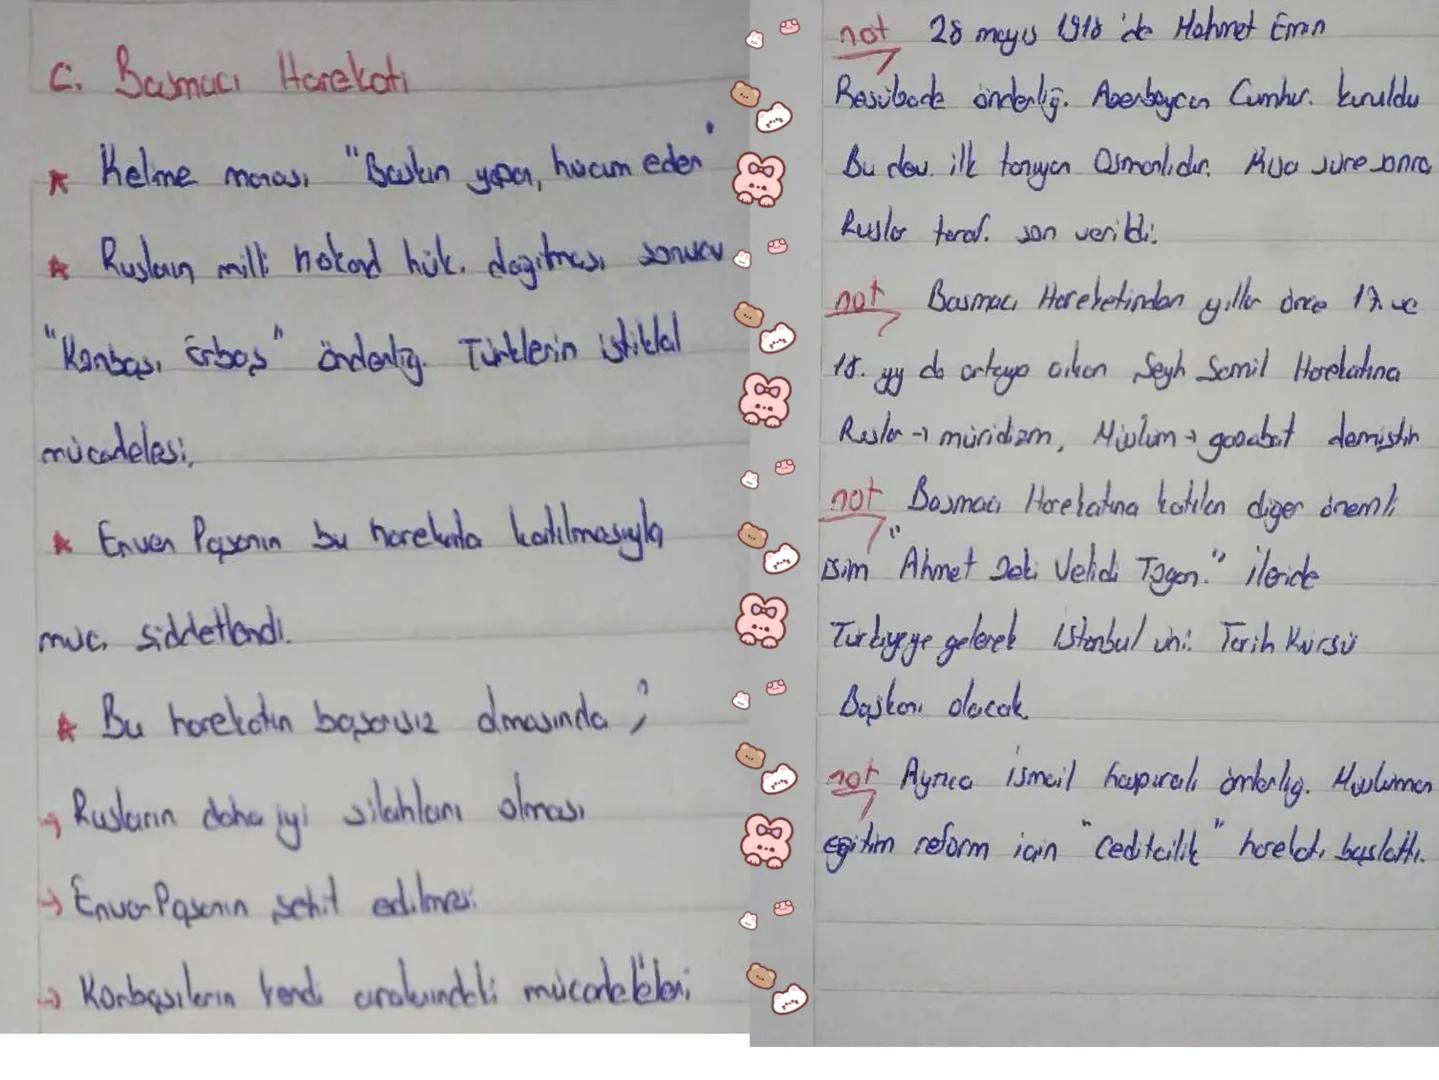 C. Basmacı Harekatı
* Kelime manası "Baskın yapan, hücum eden"
* Rusların milli hokand hük. dağıtması sonucu
"Korbaşı Erbaş" önderliğ. Türklerin istiklal
mücadelesi,
* Enver Paşanın bu harekata katılmasıyla
müc. şiddetlendi.
* Bu harekatın başarısız olmasında;
→ Rusların daha iyi silahlanı olması
→ Enver Paşanın şehit edilmesi
→ Korbaşıların kendi aralarındaki mücadeleleri
not 28 mayıs 1918'de Mehmet Emin
Resülzade önderliğ. Azerbaycan Cumhur. kuruldu
Bu dev. ilk tanıyan Osmanlıdır. Kısa süre sonra
Ruslar taraf. son verildi.
not Basmacı Hareketinden yıllar önce 17. ve
18. yy da ortaya çıkan Şeyh Şamil Harekatına
Ruslar → müridizm, Müslüm → gazabat demiştir
not Basmacı Harekatına katılan diğer önemli
isim "Ahmet Zeki Velidi Togan." ileride
Türkiyeye gelerek İstanbul üni. Tarih Kürsü
Başkanı olacak
not Ayrıca ismail haspıralı önderliğ. Müslüman
eğitim reform için "Ceditcilik" harekatı başlattı.